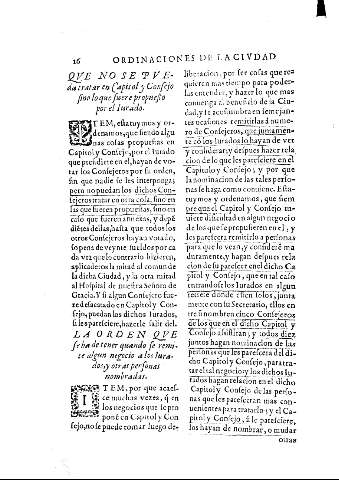 26 ORDINACIONES DE LA CIVDAD
QVE NO SE PVE-
da tratar en Capitol y Consejo
sino lo que fuere propuesto
por el Iurado.
ITEM, estatuymos y or-
denamos, que siendo algu
nas cosas propuestas en
Capitol y Consejo, por el Iurado
que presidirà en el, hayan de vo-
tar los Consejeros por su orden,
sin que nadie se les interponga,
pero no puedan los dichos Con-
sejeros tratar en otra cosa, sino en
las que fueren propuestas, sino en
caso que fueren assientos, y dispē
dietes dellas, hasta que todos los
otros Consejeros hayan votado,
sopena de veynte sueldos por ca
da vez que lo contrario hizieren,
aplicaderos la mitad al comun de
la dicha Ciudad, y la otra mitad
al Hospital de nuestra Señora de
Gracia. Y si algun Consejero fue-
re desacatado en Capitol y Con-
sejo, puedan los dichos Iurados,
si les pareciere, hazerle salir del.
LA ORDEN QVE
se ha de tener quando se remi-
te algun negocio a los Iura-
dos, y otras personas
nombradas.
ITEM, por que acaes-
ce muchas vezes, q̃ en
los negocios que se pro
ponē en Capitol y Con
sejo, no se puede tomar luego de-
liberacion, por ser cosas que re-
quieren mas tiempo para poder-
las entender, y hazer lo que mas
conuenga al beneficio de la Ciu-
dad, y se acostumbra en semejan-
tes ocasiones remitirlas à nume-
ro de Consejeros, que juntamen-
te cō los Iurados lo hayan de ver
y considerar y despues hazer rela
cion de lo que les paresciere en el
Capitol y Consejo, y por que
la nominacion de las tales perso-
nas se haga como conuiene. Esta-
tuymos y ordenamos, que siem
pre que el Capitol y Consejo tu-
uiere dificultad en algun negocio
de los que se propusieren en el, y
les paresciere remitirlo a personas
para que lo vean, y consideren ma
duramente, y hagan despues rela
cion de su parescer en el dicho Ca
pitol y Consejo, que en tal caso
entrando se los Iurados en algun
retrete donde esten solos, junta
mente con su Secretario, ellos en
tre si nombren cinco Consejeros
de los que en el dicho Capitol y
Consejo assistiran, y todos diez
juntos hagan nominacion de las
personas que les parescera del di-
cho Capitol y Consejo, para tra-
tar el tal negocio y los dichos Iu-
rados hagan relacion en el dicho
Capitol y Consejo de las perso-
nas que les paresceran mas con-
uenientes para tratarlo: y el Ca-
pitol y Consejo, si le paresciere,
los hayan de nombrar, o mudar
otras